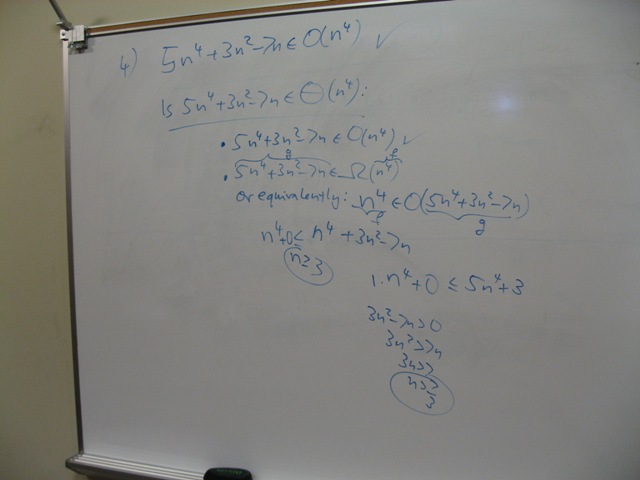 4) 5n⁴+3n²-7n ∈ O(n⁴) ✓
Is 5n⁴+3n²-7n ∈ Θ(n⁴):
• 5n⁴+3n²-7n ∈ O(n⁴) ✓
g f
• 5n⁴+3n²-7n ∈ Ω(n⁴)
or equivalently: n⁴ ∈ O(5n⁴+3n²-7n)
f g
n⁴+0 ≤ n⁴+3n²-7n
n≥3
1·n⁴+0 ≤ 5n⁴+3
3n²-7n>0
3n²>7n
3n>7
n>7/3